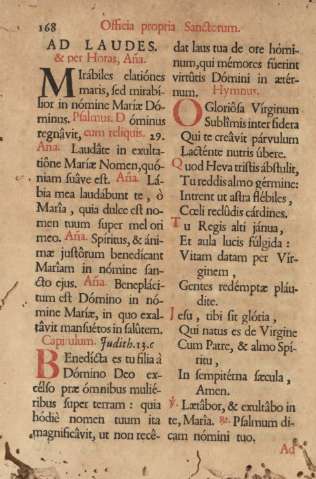 168 Officia propria Sanctorum.
AD LAUDES.
& per Horas, Aña.
Mirábiles elatiónes
maris, sed mirabí-
lior in nómine Mariæ Dó-
minus. Psalmus. Dóminus
regnávit, cum reliquis. 29.
Aña. Laudâte in exulta-
tiône Mariæ Nomen, quó-
niam suâve est. Aña. Lá-
bia mea laudábunt te, ò
María, quia dulce est no-
men tuum super mel ori
meo. Aña. Spiritus, & áni-
mæ justôrum benedicant
Mariam in nómine san-
cto ejus. Aña. Benepláci-
tum est Dómino in nó-
mine Mariæ, in quo exal-
távit mansuétos in salútem.
Capitulum. Judith. 13. c
Benedícta es tu filia à
Dómino Deo ex-
célso præ ómnibus mulié-
ribus super terram : quia
hódiè nomen tuum ita
magnificâvit, ut non recê-
dat laus tua de ore hómi-
num, qui mémores fúerint
virtútis Dómini in ætér-
num. Hymnus.
O Gloriósa Virginum
Sublîmis inter sídera
Qui te creâvit párvulum
Lacténte nutris úbere.
Quod Heva tristis ábstulit,
Tu reddis almo gérmine:
Intrent ut astra flébiles,
Cœli reclúdis cárdines.
Tu Regis alti jánua,
Et aula lucis fúlgida :
Vitam datam per Vir-
ginem,
Gentes redémptæ pláu-
dite.
Jesu, tibi sit glória,
Qui natus es de Virgine
Cum Patre, & almo Spí-
ritu,
In sempitérna sæcula,
Amen.
℣. Lætábor, & exultábo in
te, María. ℟. Psalmum di-
cam nómini tuo.
Ad